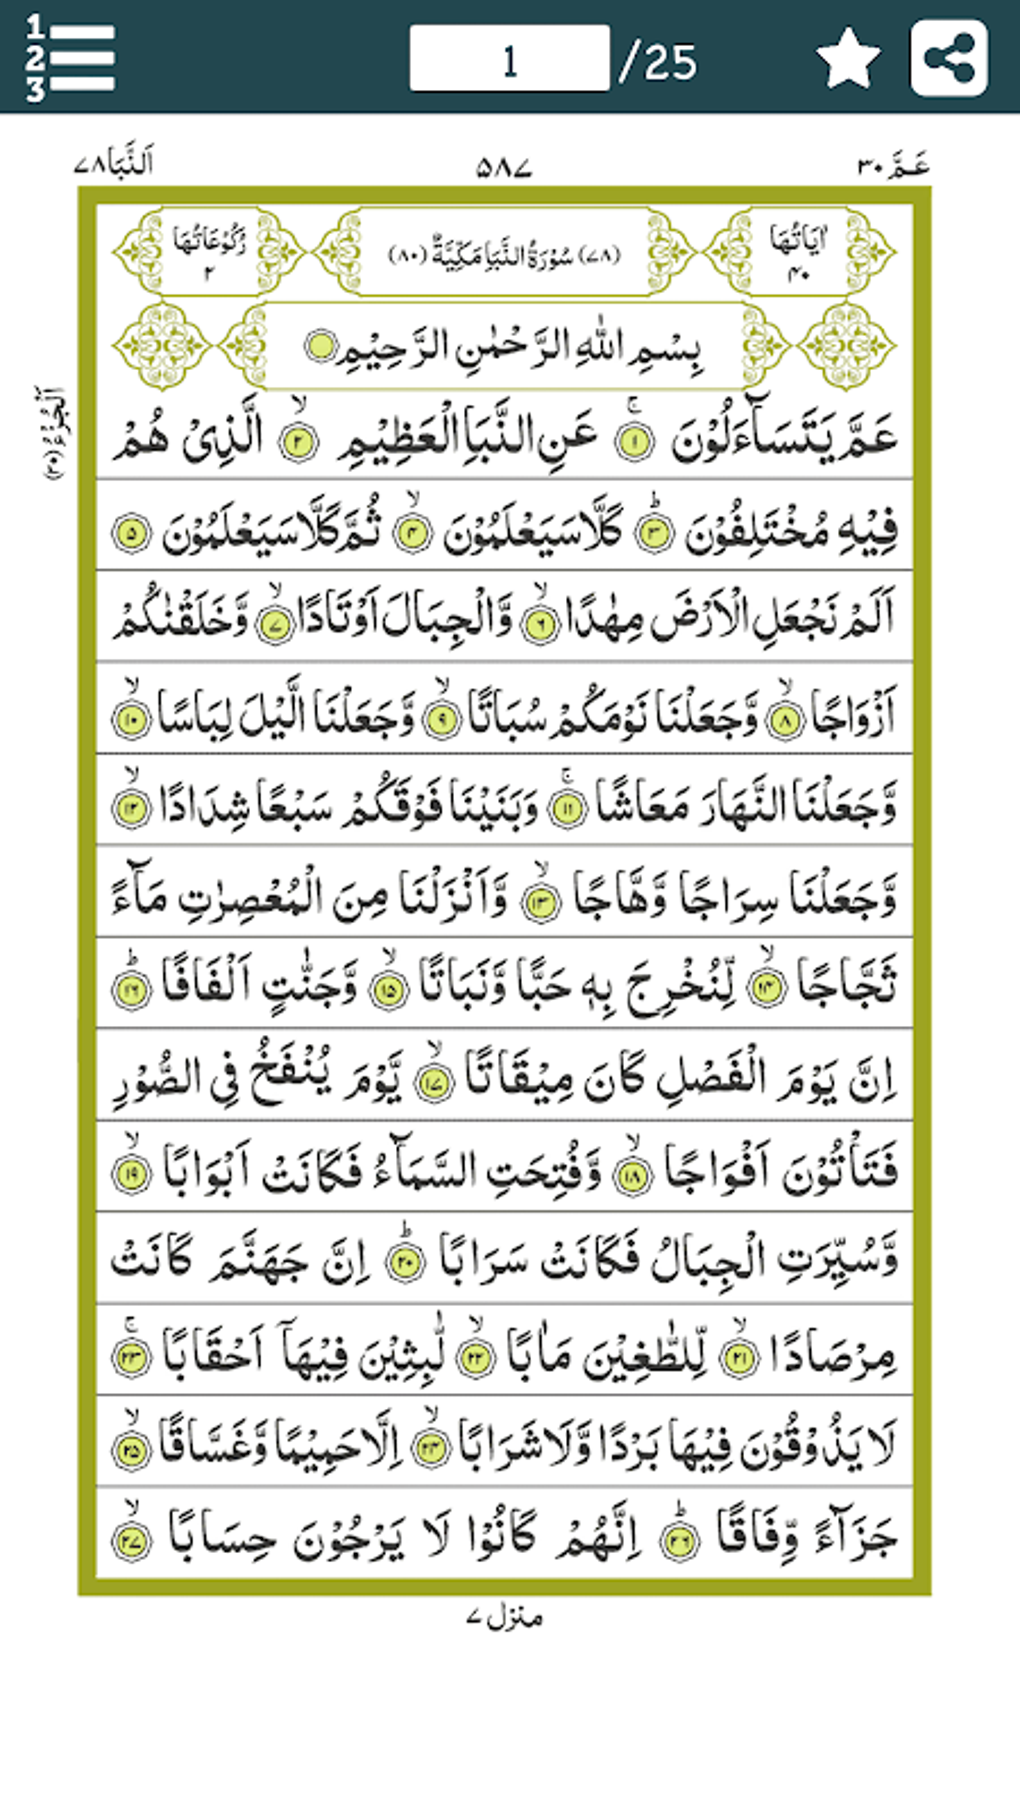 1
2
3
1 /25
عَمَّ ۳۰
۵۸۷
اَلنَّبَا ۷۸
اٰیَاتُهَا ۴۰
(۷۸) سُوْرَةُ النَّبَاِ مَكِّیَّةٌ (۸۰)
رُكُوْعَاتُهَا ۲
بِسْمِ اللّٰهِ الرَّحْمٰنِ الرَّحِیْمِ
اَلْجُزْءُ (۳۰)
عَمَّ یَتَسَآءَلُوْنَ ۚ‏﴿۱﴾ عَنِ النَّبَاِ الْعَظِیْمِ ۙ‏﴿۲﴾ الَّذِیْ هُمْ
فِیْهِ مُخْتَلِفُوْنَ ؕ‏﴿۳﴾ كَلَّا سَیَعْلَمُوْنَ ۙ‏﴿۴﴾ ثُمَّ كَلَّا سَیَعْلَمُوْنَ ﴿۵﴾
اَلَمْ نَجْعَلِ الْاَرْضَ مِهٰدًا ۙ‏﴿۶﴾ وَّالْجِبَالَ اَوْتَادًا ۙ‏﴿۷﴾ وَّخَلَقْنٰكُمْ
اَزْوَاجًا ۙ‏﴿۸﴾ وَّجَعَلْنَا نَوْمَكُمْ سُبَاتًا ۙ‏﴿۹﴾ وَّجَعَلْنَا الَّیْلَ لِبَاسًا ۙ‏﴿۱۰﴾
وَّجَعَلْنَا النَّهَارَ مَعَاشًا ۚ‏﴿۱۱﴾ وَبَنَیْنَا فَوْقَكُمْ سَبْعًا شِدَادًا ۙ‏﴿۱۲﴾
وَّجَعَلْنَا سِرَاجًا وَّهَّاجًا ۙ‏﴿۱۳﴾ وَّاَنْزَلْنَا مِنَ الْمُعْصِرٰتِ مَآءً
ثَجَّاجًا ۙ‏﴿۱۴﴾ لِّنُخْرِجَ بِهٖ حَبًّا وَّنَبَاتًا ۙ‏﴿۱۵﴾ وَّجَنّٰتٍ اَلْفَافًا ؕ‏﴿۱۶﴾
اِنَّ یَوْمَ الْفَصْلِ كَانَ مِیْقَاتًا ۙ‏﴿۱۷﴾ یَّوْمَ یُنْفَخُ فِی الصُّوْرِ
فَتَاْتُوْنَ اَفْوَاجًا ۙ‏﴿۱۸﴾ وَّفُتِحَتِ السَّمَآءُ فَكَانَتْ اَبْوَابًا ۙ‏﴿۱۹﴾
وَّسُیِّرَتِ الْجِبَالُ فَكَانَتْ سَرَابًا ؕ‏﴿۲۰﴾ اِنَّ جَهَنَّمَ كَانَتْ
مِرْصَادًا ۙ‏﴿۲۱﴾ لِّلطّٰغِیْنَ مَاٰبًا ۙ‏﴿۲۲﴾ لّٰبِثِیْنَ فِیْهَاۤ اَحْقَابًا ۚ‏﴿۲۳﴾
لَا یَذُوْقُوْنَ فِیْهَا بَرْدًا وَّلَا شَرَابًا ۙ‏﴿۲۴﴾ اِلَّا حَمِیْمًا وَّغَسَّاقًا ۙ‏﴿۲۵﴾
جَزَآءً وِّفَاقًا ؕ‏﴿۲۶﴾ اِنَّهُمْ كَانُوْا لَا یَرْجُوْنَ حِسَابًا ۙ‏﴿۲۷﴾
منزل ۷